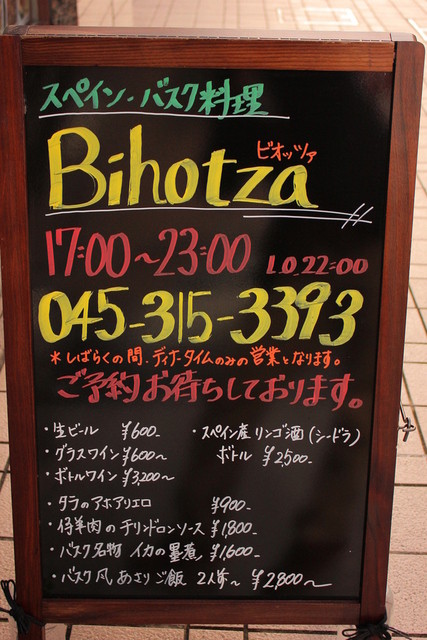 スペイン・バスク料理
ビオッツァ
Bihotza
17:00〜23:00 L.O.22:00
045-315-3393
＊しばらくの間、ディナータイムのみの営業となります。
ご予約お待ちしております。
・生ビール ¥600-
・グラスワイン ¥600〜
・ボトルワイン ¥3,200〜
・スペイン産リンゴ酒(シードラ)
ボトル ¥2,500-
・タラのアホアリエロ ¥900-
・仔羊肉のチリンドロンソース ¥1,800-
・バスク名物 イカの墨煮 ¥1,600-
・バスク風 あさりご飯 2人前〜 ¥2,800〜